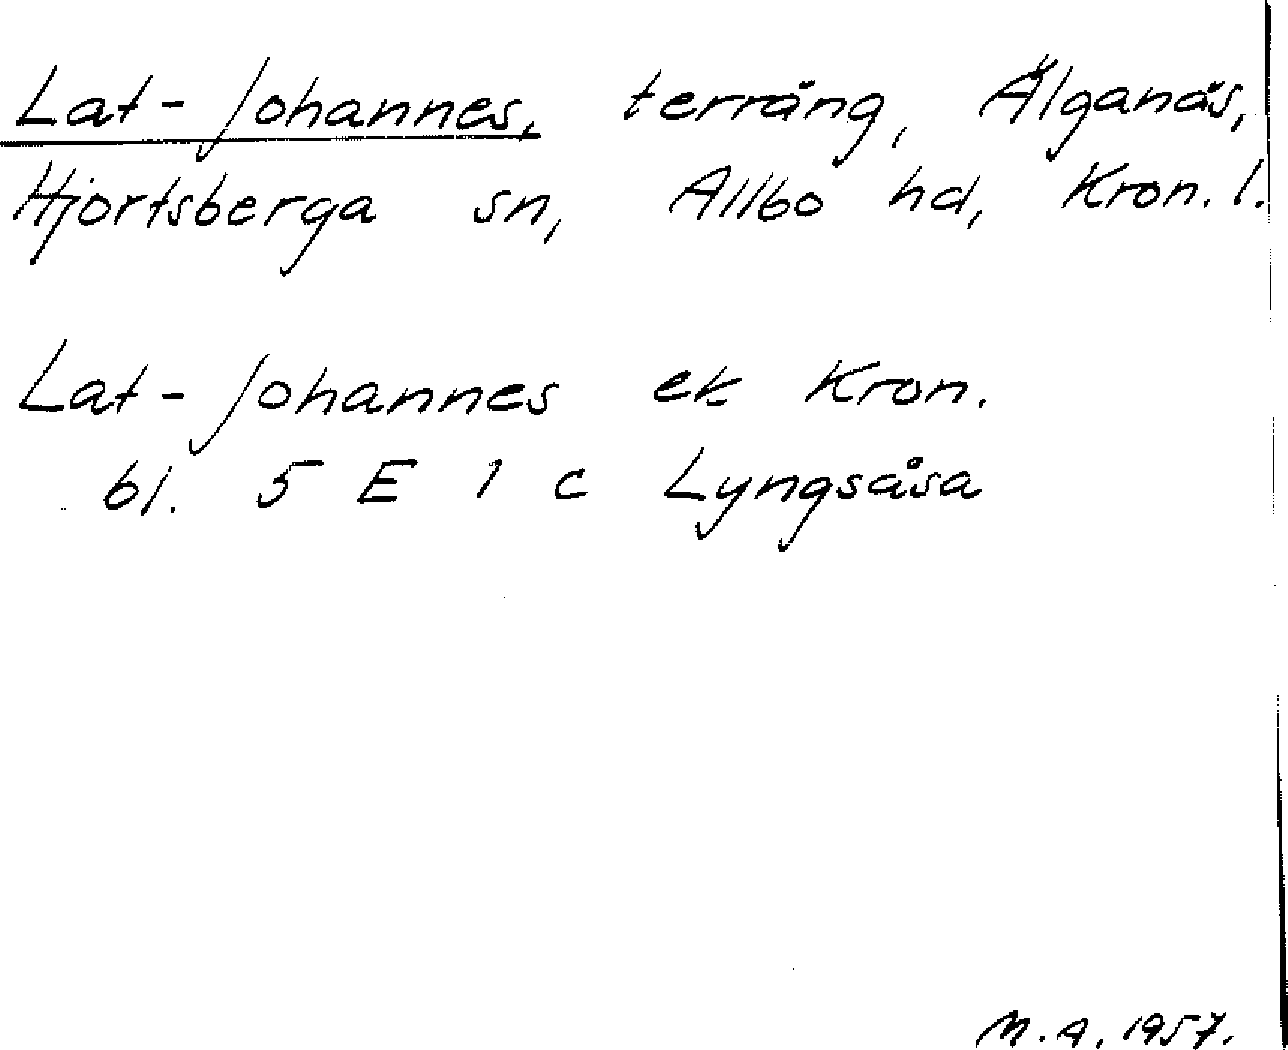 Lat-Johannes, terräng, Älganäs,
Hjortsberga sn, Allbo hd, Kron. l.
Lat-Johannes ek Kron.
bl. 5 E 1 c Lyngsåsa
M.A. 1957.